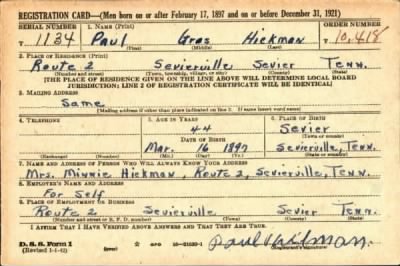 REGISTRATION CARD—(Men born on or after February 17, 1897 and on or before December 31, 1921)
SERIAL NUMBER 1. NAME (Print) ORDER NUMBER
T 1134 Paul Gros Hickman T 10,418
(First) (Middle) (Last)
2. PLACE OF RESIDENCE (Print)
Route 2 Sevierville Sevier Tenn.
(Number and street) (Town, township, village, or city) (County) (State)
[THE PLACE OF RESIDENCE GIVEN ON THE LINE ABOVE WILL DETERMINE LOCAL BOARD
JURISDICTION; LINE 2 OF REGISTRATION CERTIFICATE WILL BE IDENTICAL]
3. MAILING ADDRESS
Same
[Mailing address if other than place indicated on line 2. If same insert word same]
4. TELEPHONE 5. AGE IN YEARS 6. PLACE OF BIRTH
44 Sevier
DATE OF BIRTH (Town or county)
Mar. 16 1897 Sevierville, Tenn.
(Exchange) (Number) (Mo.) (Day) (Yr.) (State or country)
7. NAME AND ADDRESS OF PERSON WHO WILL ALWAYS KNOW YOUR ADDRESS
Mrs. Minnie Hickman, Route 2, Sevierville, Tenn.
8. EMPLOYER'S NAME AND ADDRESS
For Self
9. PLACE OF EMPLOYMENT OR BUSINESS
Route 2 Sevierville Sevier Tenn.
(Number and street or R. F. D. number) (Town) (County) (State)
I AFFIRM THAT I HAVE VERIFIED ABOVE ANSWERS AND THAT THEY ARE TRUE.
D. S. S. Form 1
(Revised 1-1-42) GPO Paul Hickman
(Registrant's signature)